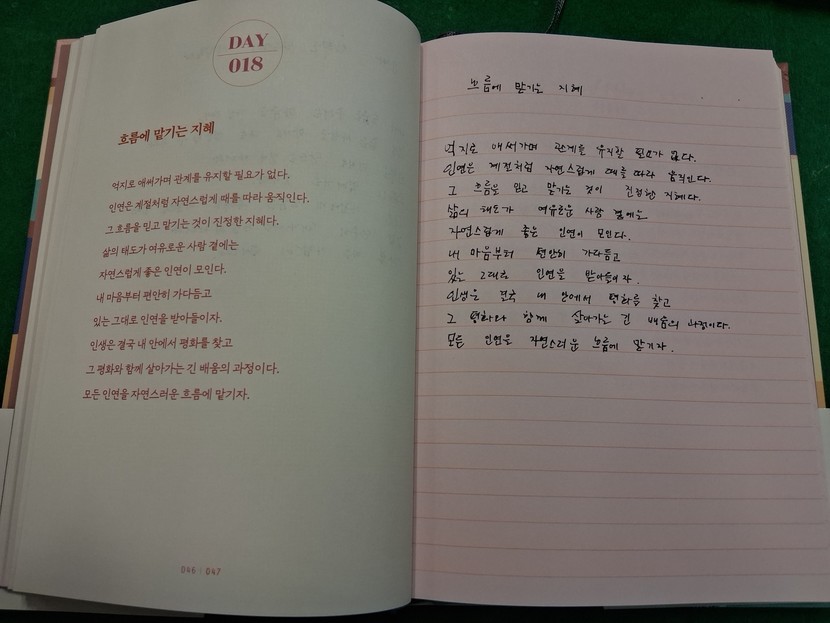 DAY
018
흐름에 맡기는 지혜
억지로 애써가며 관계를 유지할 필요가 없다.
인연은 계절처럼 자연스럽게 때를 따라 움직인다.
그 흐름을 믿고 맡기는 것이 진정한 지혜다.
삶의 태도가 여유로운 사람 곁에는
자연스럽게 좋은 인연이 모인다.
내 마음부터 편안히 가다듬고
있는 그대로 인연을 받아들이자.
인생은 결국 내 안에서 평화를 찾고
그 평화와 함께 살아가는 긴 배움의 과정이다.
모든 인연을 자연스러운 흐름에 맡기자.
046 | 047
흐름에 맡기는 지혜
억지로 애써가며 관계를 유지할 필요가 없다.
인연은 계절처럼 자연스럽게 때를 따라 움직인다.
그 흐름을 믿고 맡기는 것이 진정한 지혜다.
삶의 태도가 여유로운 사람 곁에는
자연스럽게 좋은 인연이 모인다.
내 마음부터 편안히 가다듬고
있는 그대로 인연을 받아들이자.
인생은 결국 내 안에서 평화를 찾고
그 평화와 함께 살아가는 긴 배움의 과정이다.
모든 인연을 자연스러운 흐름에 맡기자.